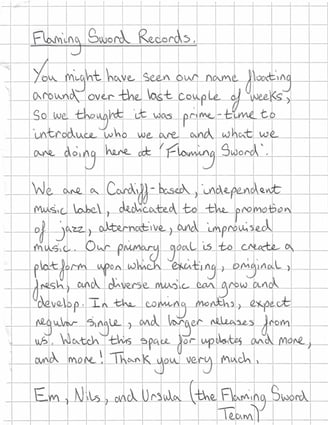 Flaming Sword Records.
You might have seen our name floating
around over the last couple of weeks,
so we thought it was prime-time to
introduce who we are and what we
are doing here at 'Flaming Sword'.
We are a Cardiff-based, independent
music label, dedicated to the promotion
of jazz, alternative, and improvised
music. Our primary goal is to create a
platform upon which exciting, original,
fresh, and diverse music can grow and
develop. In the coming months, expect
regular single, and larger releases from
us. Watch this space for updates and more,
and more! Thank you very much.
Em, Nils, and Ursula (the Flaming Sword
Team)